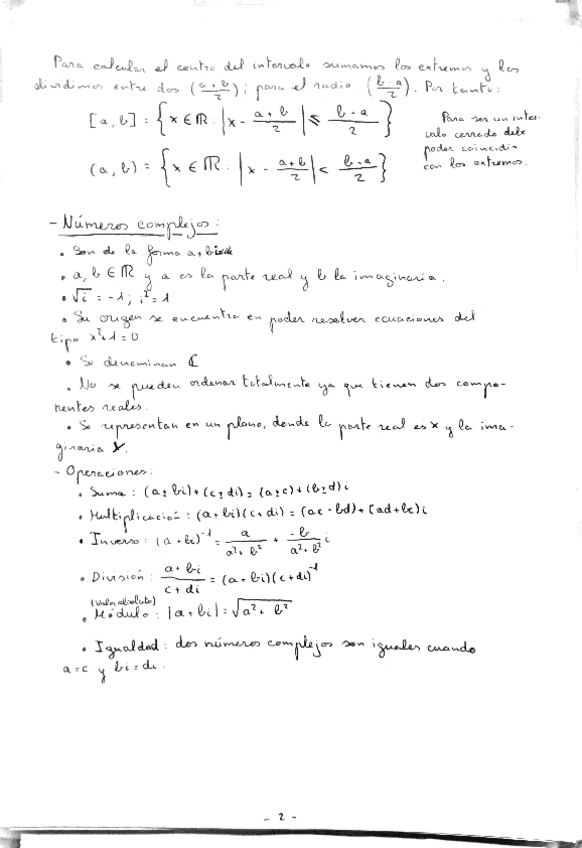 Para calcular el centro del intervalo sumamos los extremos y los
dividimos entre dos (a+b/2); para el radio (b-a/2). Por tanto:
[a, b] = {x ∈ ℝ : |x - a+b/2| ≤ b-a/2}
(a, b) = {x ∈ ℝ : |x - a+b/2| < b-a/2}
Para ser un inter-
valo cerrado debe
poder coincidi-
con los extremos.
- Números complejos:
• Son de la forma a+bi
• a, b ∈ ℝ y a es la parte real y b la imaginaria.
• √i = -1; i² = 1
• Su origen se encuentra en poder resolver ecuaciones del
tipo x²+1=0
• Se denominan ℂ
• No se pueden ordenar totalmente ya que tienen dos compo-
nentes reales.
• Se representan en un plano, donde la parte real es x y la ima-
ginaria y.
- Operaciones:
• Suma: (a±bi)+(c±di)=(a±c)+(b±d)i
• Multiplicación: (a+bi)(c+di)=(ac-bd)+(ad+bc)i
• Inverso: (a+bi)⁻¹ = a/a²+b² + -b/a²+b² i
• División: a+bi/c+di = (a+bi)(c+di)⁻¹
(Valor absoluto)
• Módulo: |a+bi| = √a²+b²
• Igualdad: dos números complejos son iguales cuando
a=c y bi=di.
- 2 -